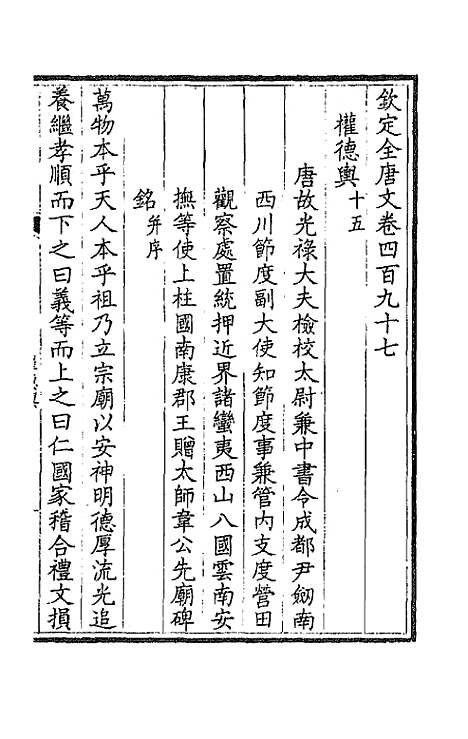 欽定全唐文卷四百九十七
權德輿十五
唐故光祿大夫檢校太尉兼中書令成都尹劒南
西川節度副大使知節度事兼管內支度營田
觀察處置統押近界諸蠻夷西山八國雲南安
撫等使上柱國南康郡王贈太師韋公先廟碑
銘并序
萬物本乎天人本乎祖乃立宗廟以安神明德厚流光追
養繼孝順而下之曰義等而上之曰仁國家稽合禮文損